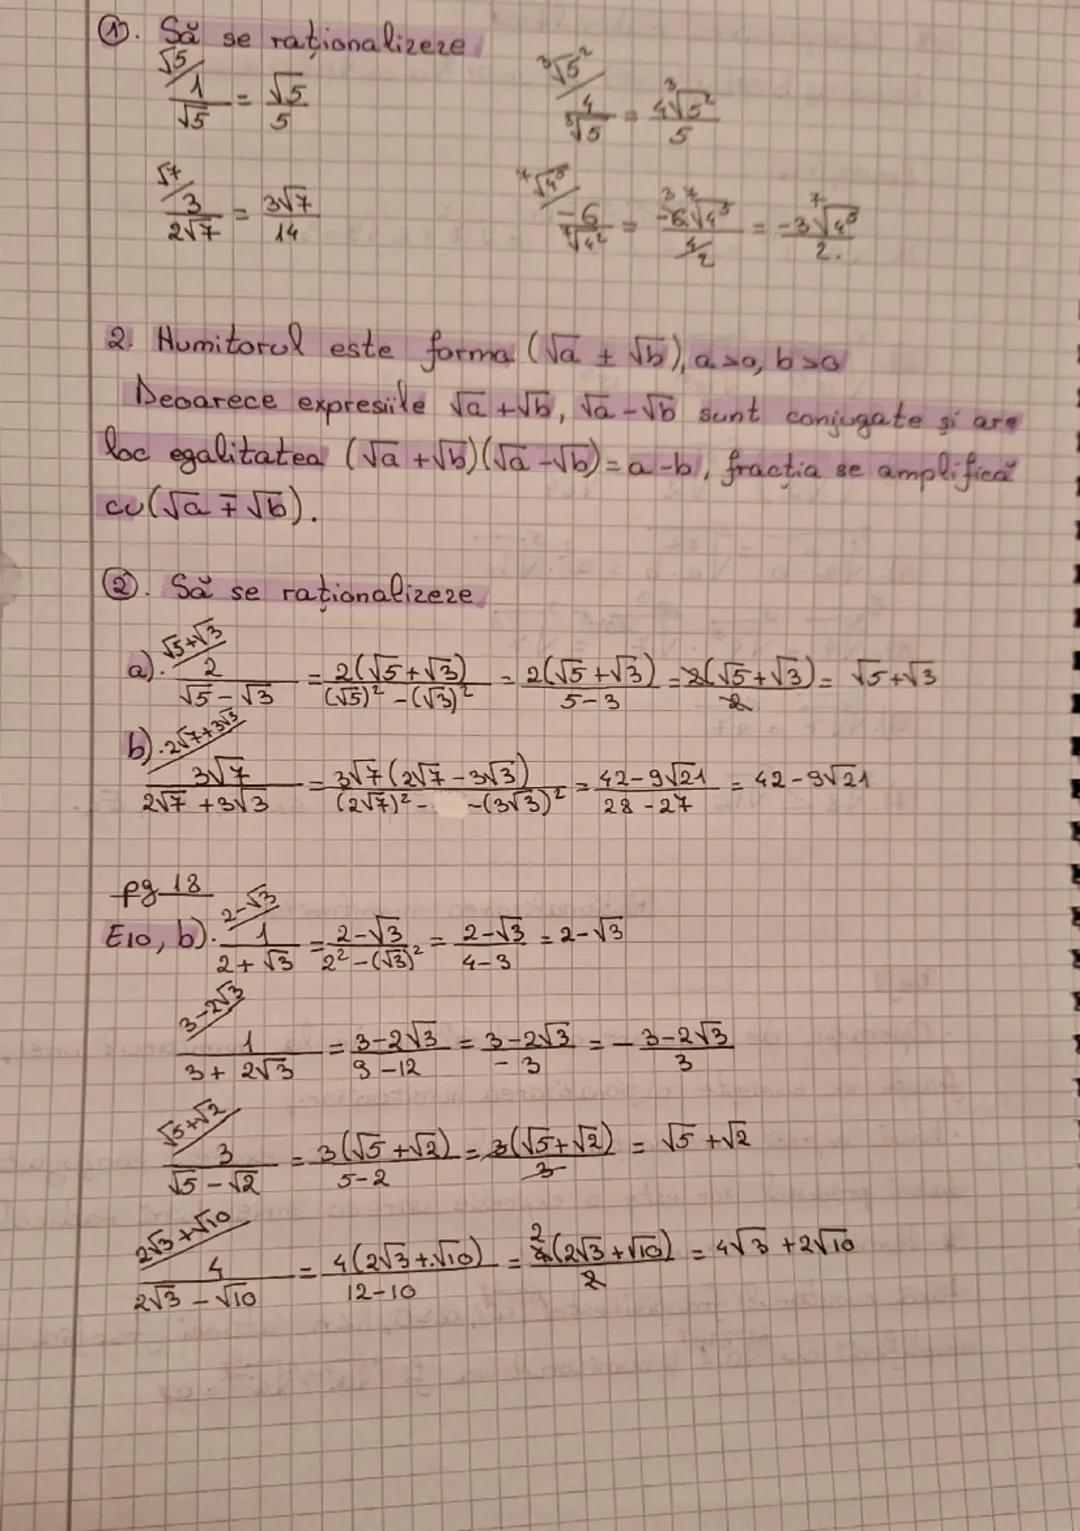 ①. Să se raționalizeze
√5/ 1/√5 = √5/5
³√5²/ 4/³√5 = 4³√5²/5
√7/ 3/2√7 = 3√7/14
⁷√4⁵/ -6/⁷√4² = -6⁷√4⁵/4 = -3⁷√4⁵/2.
2. Numitorul este forma (√a ± √b), a>0, b>0
Deoarece expresiile √a+√b, √a-√b sunt conjugate și are
loc egalitatea (√a+√b)(√a-√b)=a-b, fracția se amplifică
cu (√a∓√b).
②. Să se raționalizeze
a). √5+√3/ 2/(√5-√3) = 2(√5+√3)/((√5)²-(√3)²) = 2(√5+√3)/(5-3) = 2(√5+√3)/2 = √5+√3
b). 2√7+3√3/ 3√7/(2√7+3√3) = 3√7(2√7-3√3)/((2√7)²- -(3√3)²) = (42-9√21)/(28-27) = 42-9√21
pg 18
E10, b). 2-√3/ 1/(2+√3) = (2-√3)/(2²-(√3)²) = (2-√3)/(4-3) = 2-√3
3-2√3/ 1/(3+2√3) = (3-2√3)/(9-12) = (3-2√3)/(-3) = -(3-2√3)/3
√5+√2/ 3/(√5-√2) = 3(√5+√2)/(5-2) = 3(√5+√2)/3 = √5+√2
2√3+√10/ 4/(2√3-√10) = 4(2√3+√10)/(12-10) = 4(2√3+√10)/2 = 4√3+2√10